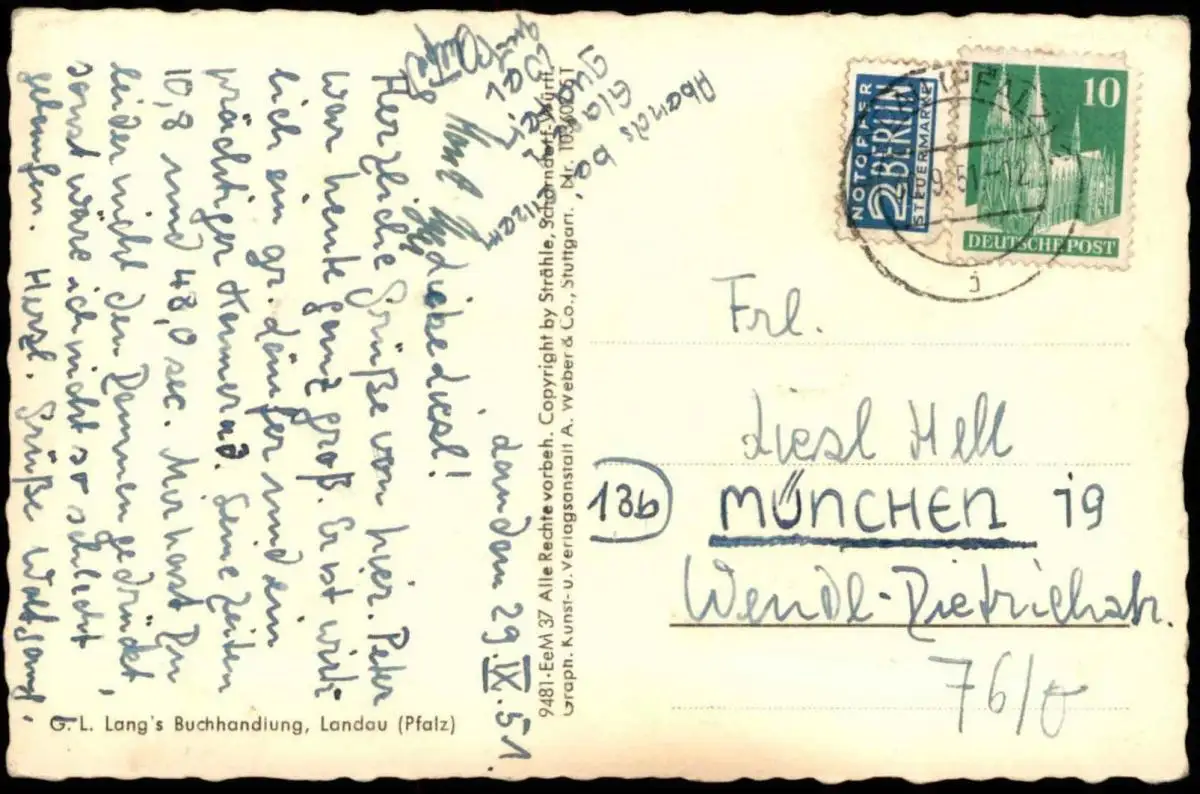 Landau, 29.IX.51.
Liebe Liesl!
Herzliche Grüße von hier. Peter
war heute ganz groß. Er ist wirk-
lich ein gr. Läufer und ein
prächtiger Kamerad. Seine Zeiten
10,8 und 48,0 sec. Mir hast Du
leider nicht den Daumen gedrückt,
sonst wäre ich nicht so schlecht
gelaufen. Herzl. Grüße Wolfgang.
Abends be
G. L. Lang's Buchhandlung, Landau (Pfalz)
9481-EeM 37 Alle Rechte vorbeh. Copyright by Strähle, Schorndorf-Württ.
Graph. Kunst- u. Verlagsanstalt A. Weber & Co., Stuttgart.
NOTOPFER
2 BERLIN
STEUERMARKE
10
DEUTSCHE POST
Frl.
Liesl Hell
13b MÜNCHEN 19
Wendl-Dietrichstr.
76/0